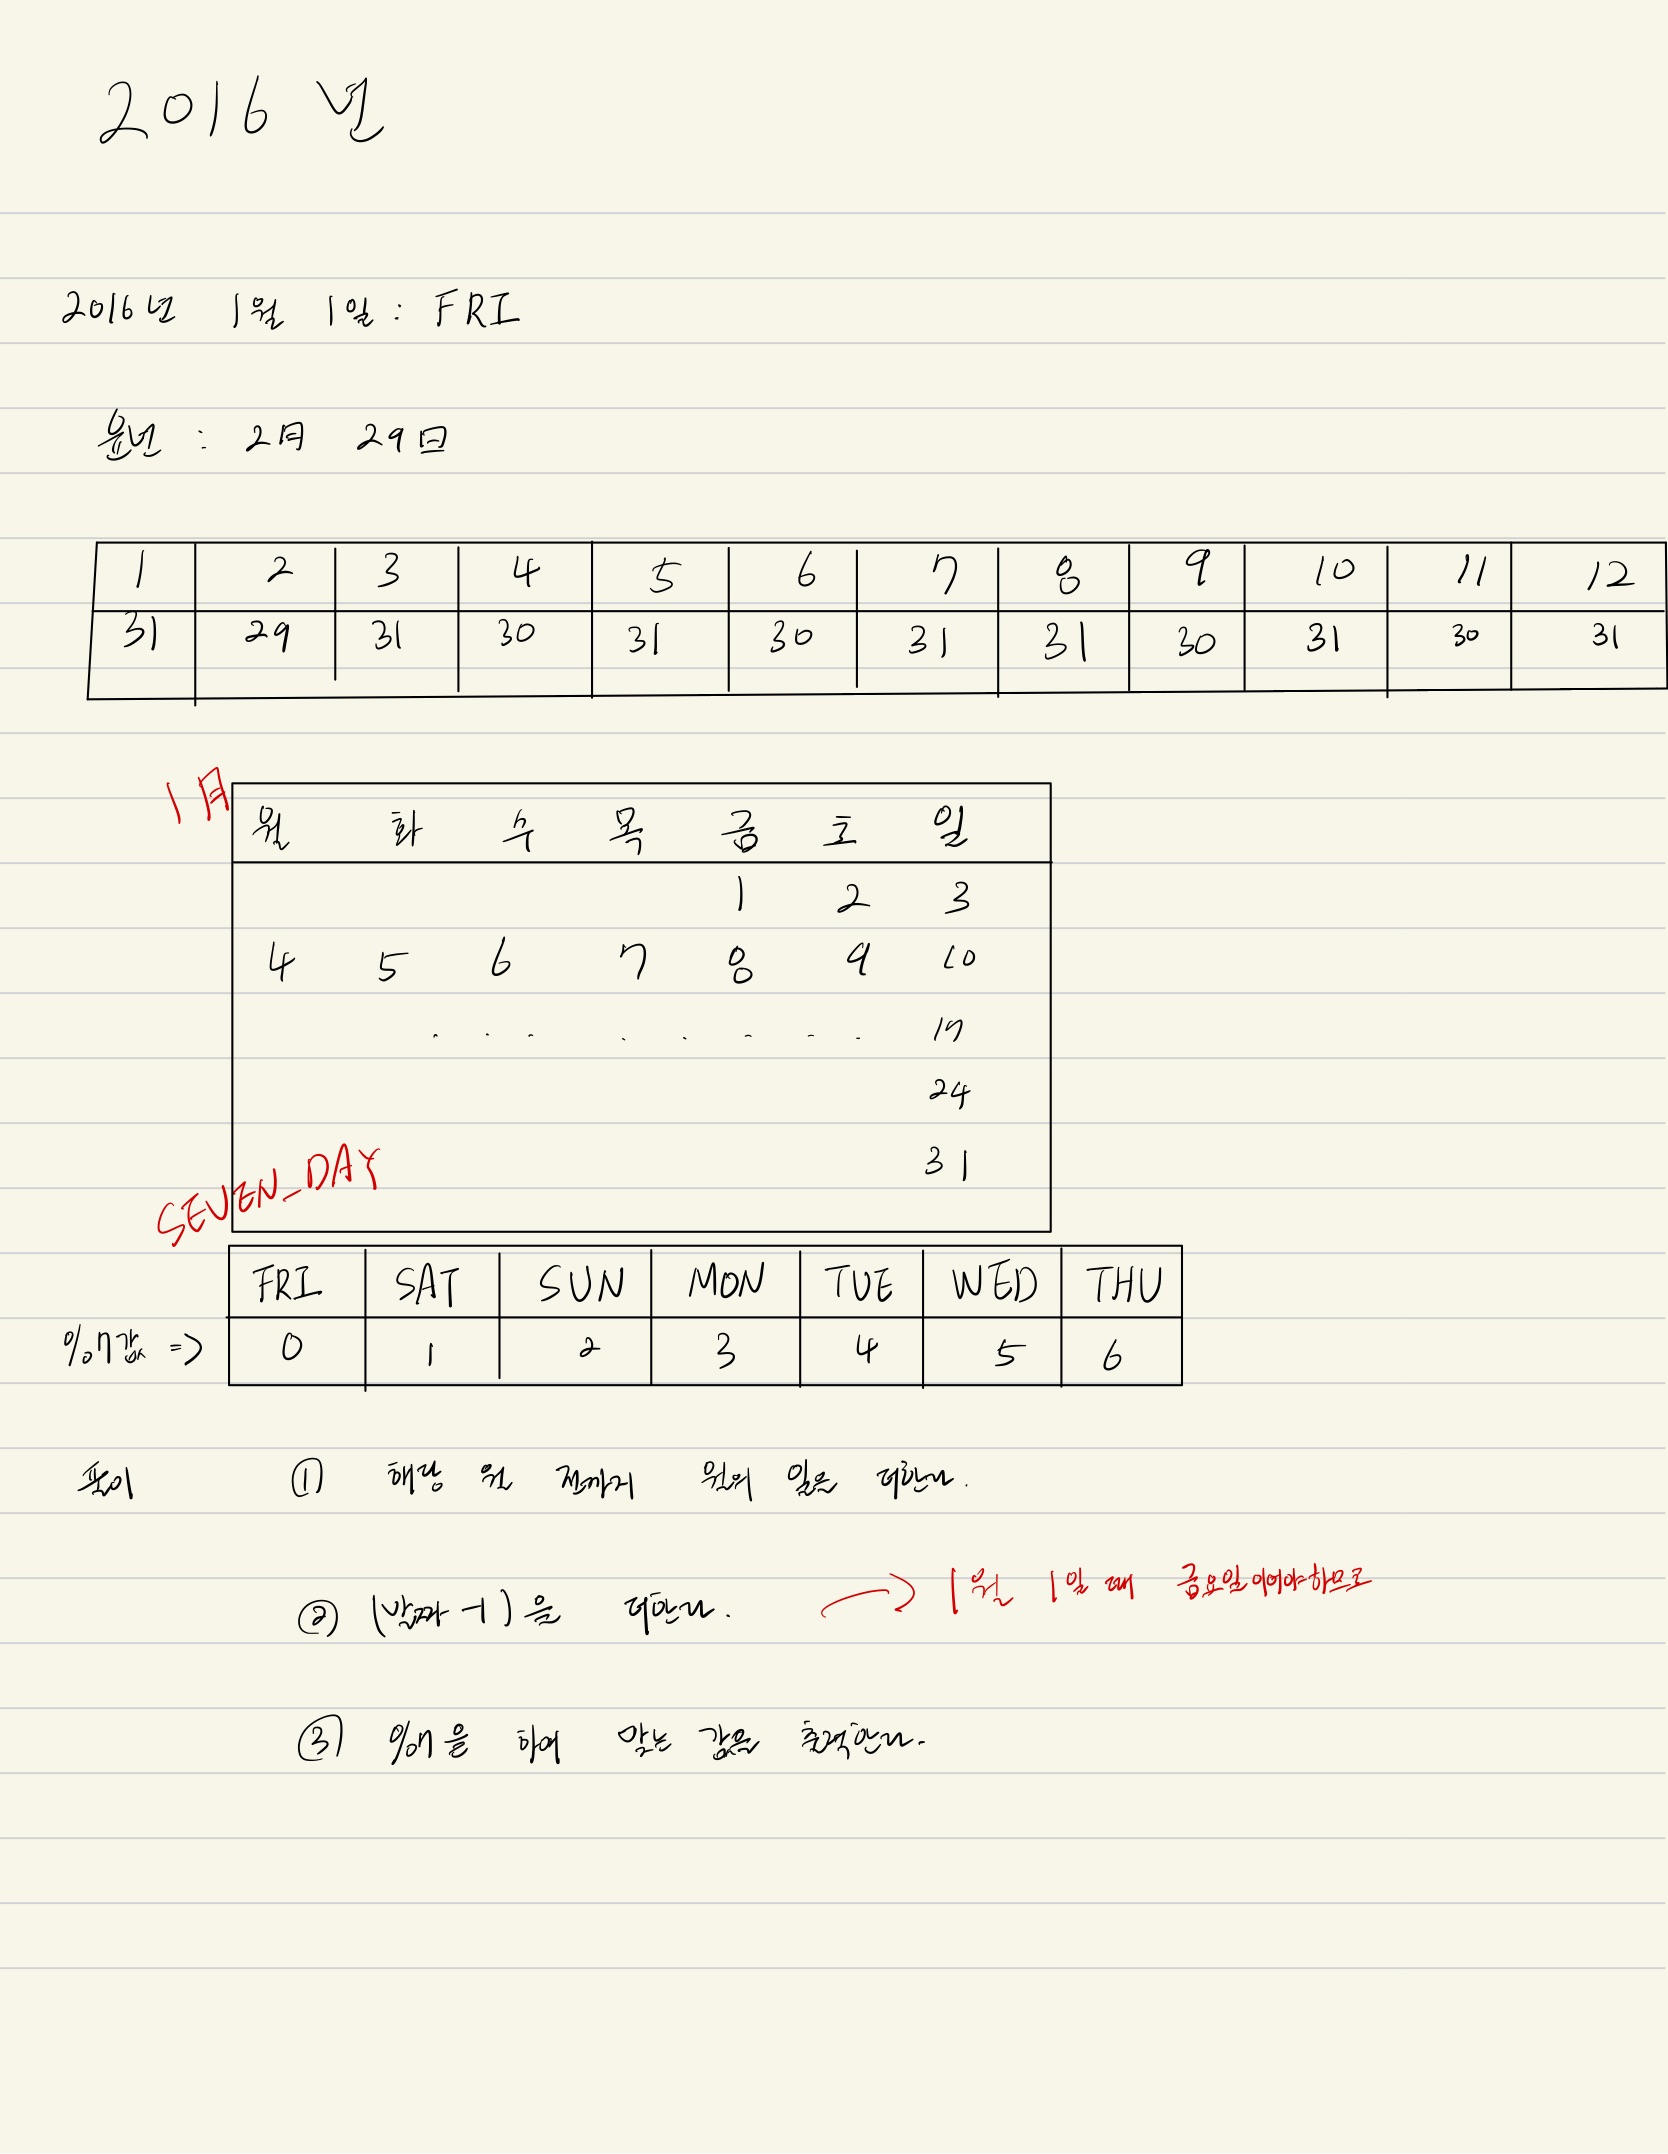 2016 년
2016년 1월 1일 : FRI
윤년 : 2月 29日
1 2 3 4 5 6 7 8 9 10 11 12
31 29 31 30 31 30 31 31 30 31 30 31
1月
월 화 수 목 금 토 일
1 2 3
4 5 6 7 8 9 10
. . . . . . . . 17
24
31
SEVEN_DAY
FRI SAT SUN MON TUE WED THU
%7값 => 0 1 2 3 4 5 6
풀이 ① 해당 월 전까지 월의 일을 더한다.
② (날짜-1)을 더한다. → 1월 1일 때 금요일이어야하므로
③ %7을 하여 맞는 값을 출력한다.